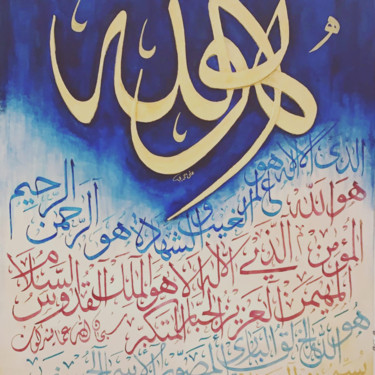 هو الله
الذي لا إله إلا هو
عالم الغيب والشهادة هو الرحمن الرحيم
هو الله الذي لا إله إلا هو الملك القدوس السلام
المؤمن المهيمن العزيز الجبار المتكبر
سبحان الله عما يشركون
هو الله الخالق البارئ المصور